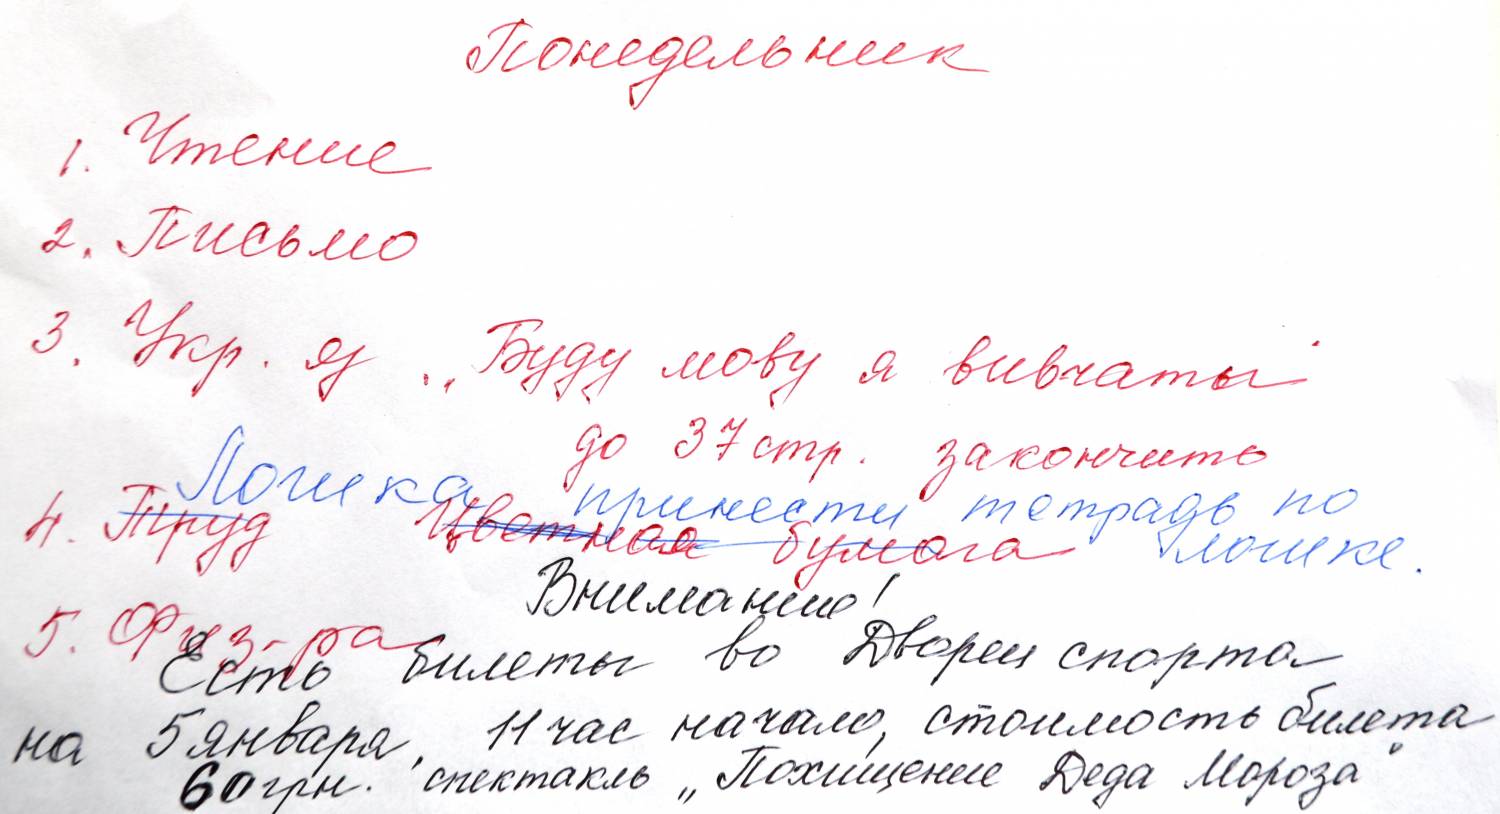 Понедельник
1. Чтение
2. Письмо
3. Укр. яз. „Буду мову я вивчаты"
до 37 стр. закончить
Логика принести тетрадь по
4. Труд Цветная бумага логике.
Внимание!
5. Физ-ра
Есть билеты во Дворец спорта
на 5 января, 11 час начало, стоимость билета
60 грн. спектакль „Похищение Деда Мороза"